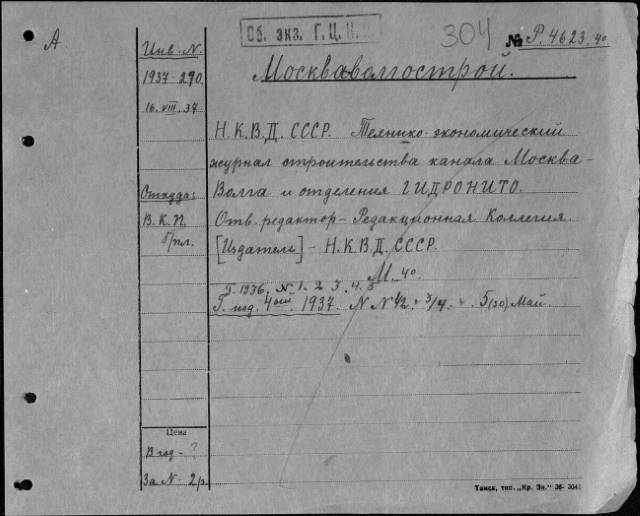 А
Инв. N.
1937-290.
16. VIII. 37
Откуда:
В. К. П.
б/пл.
Цена
В год - ?
За N - 2 р.
Об. экз. Г.Ц.
304
№ Р. 4623. 40.
Москваволгострой.
Н.К.В.Д. СССР. Технико-экономический
журнал строительства канала Москва-
Волга и отделения ГИДРОНИТО.
Отв. редактор - Редакционная Коллегия.
[Издатель] - Н.К.В.Д. СССР.
М. 40.
Г. 1936, N 1. 2 3. 4. 5
Г. изд. 4ый 1937. N N 1/2. 3/4. 5 (30) Май.
Томск, тип. „Кр. Зн." 36- 3041